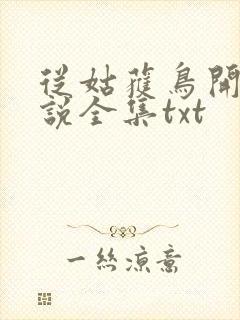 從姑獲鳥開
說全集txt
一絲涼意